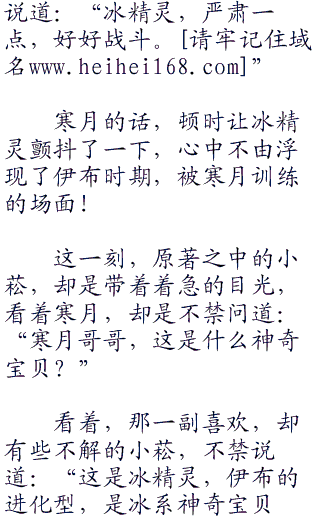 说道：“冰精灵，严肃一
点，好好战斗。[请牢记住域
名www.heihei168.com]”
寒月的话，顿时让冰精
灵颤抖了一下，心中不由浮
现了伊布时期，被寒月训练
的场面！
这一刻，原著之中的小
菘，却是带着着急的目光，
看着寒月，却是不禁问道：
“寒月哥哥，这是什么神奇
宝贝？”
看着，那一副喜欢，却
有些不解的小菘，不禁说
道：“这是冰精灵，伊布的
进化型，是冰系神奇宝贝